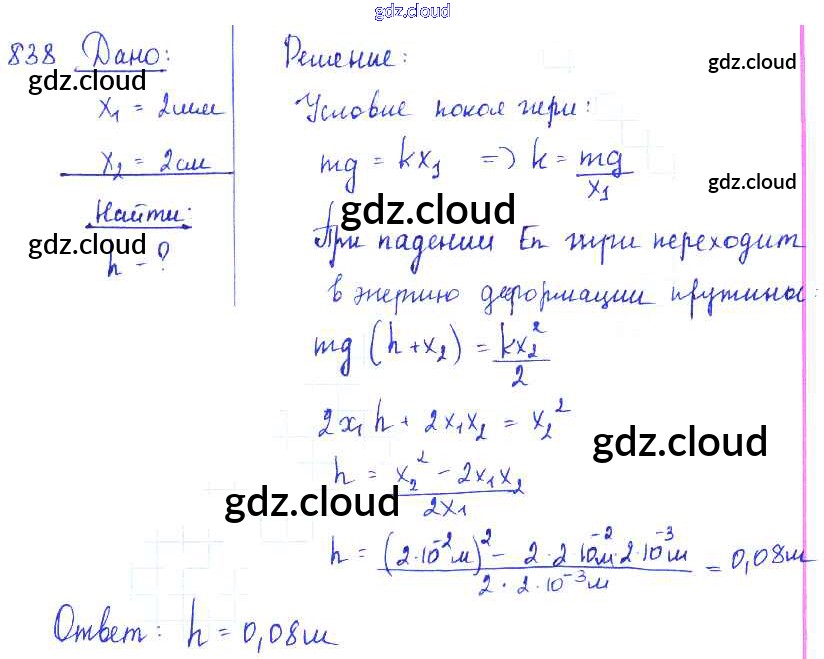 gdz.cloud
838 Дано:
gdz.cloud
x₁ = 2мм
x₂ = 2см
Найти:
gdz.cloud
h - ?
Решение:
gdz.cloud
Условие покоя гири:
mg = kx₁ => k = mg/x₁
gdz.cloud
gdz.cloud
При падении Eп гири переходит
в энергию деформации пружины:
mg (h + x₂) = kx₂²/2
2x₁h + 2x₁x₂ = x₂²
gdz.cloud
h = (x₂² - 2x₁x₂)/2x₁
gdz.cloud
h = ((2·10⁻²м)² - 2·2·10⁻²м·2·10⁻³м)/(2·2·10⁻³м) = 0,08м
Ответ: h = 0,08м